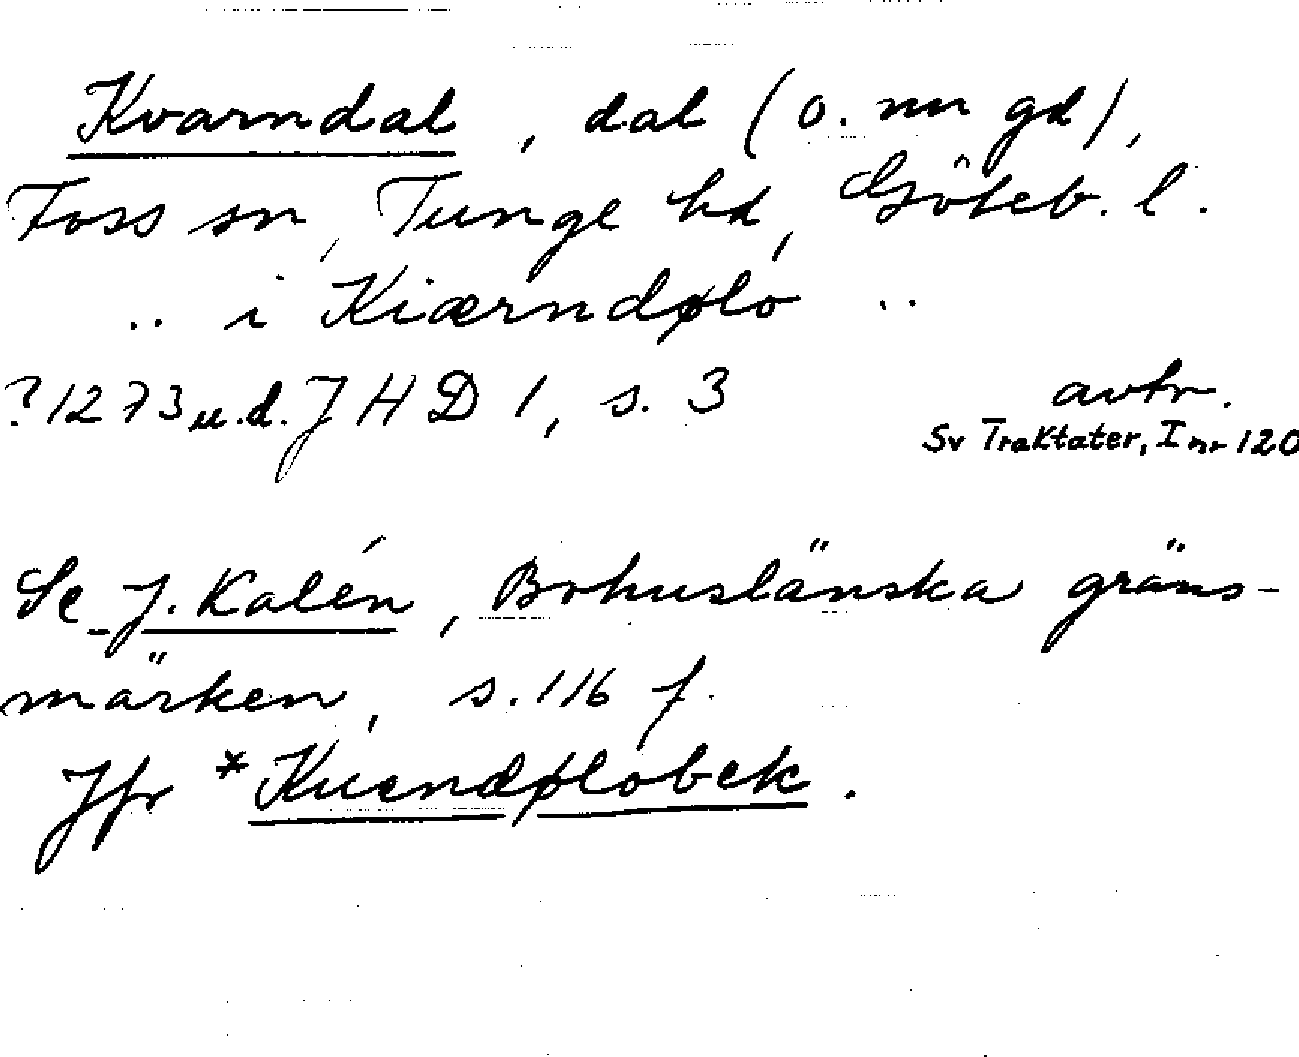 Kvarndal, dal (o. nu gd),
Foss sn, Tunge hd, Göteb. l.
.. i Kiærndølo ..
?1273 u.d. JHD 1, s. 3 avtr.
Sv Traktater, I nr 120
Se J. Kalén, Bohuslänska gräns-
märken, s. 116 f.
Jfr *Kuendølobek.